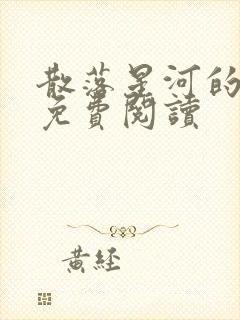 散落星河的
免費閱讀
黃經